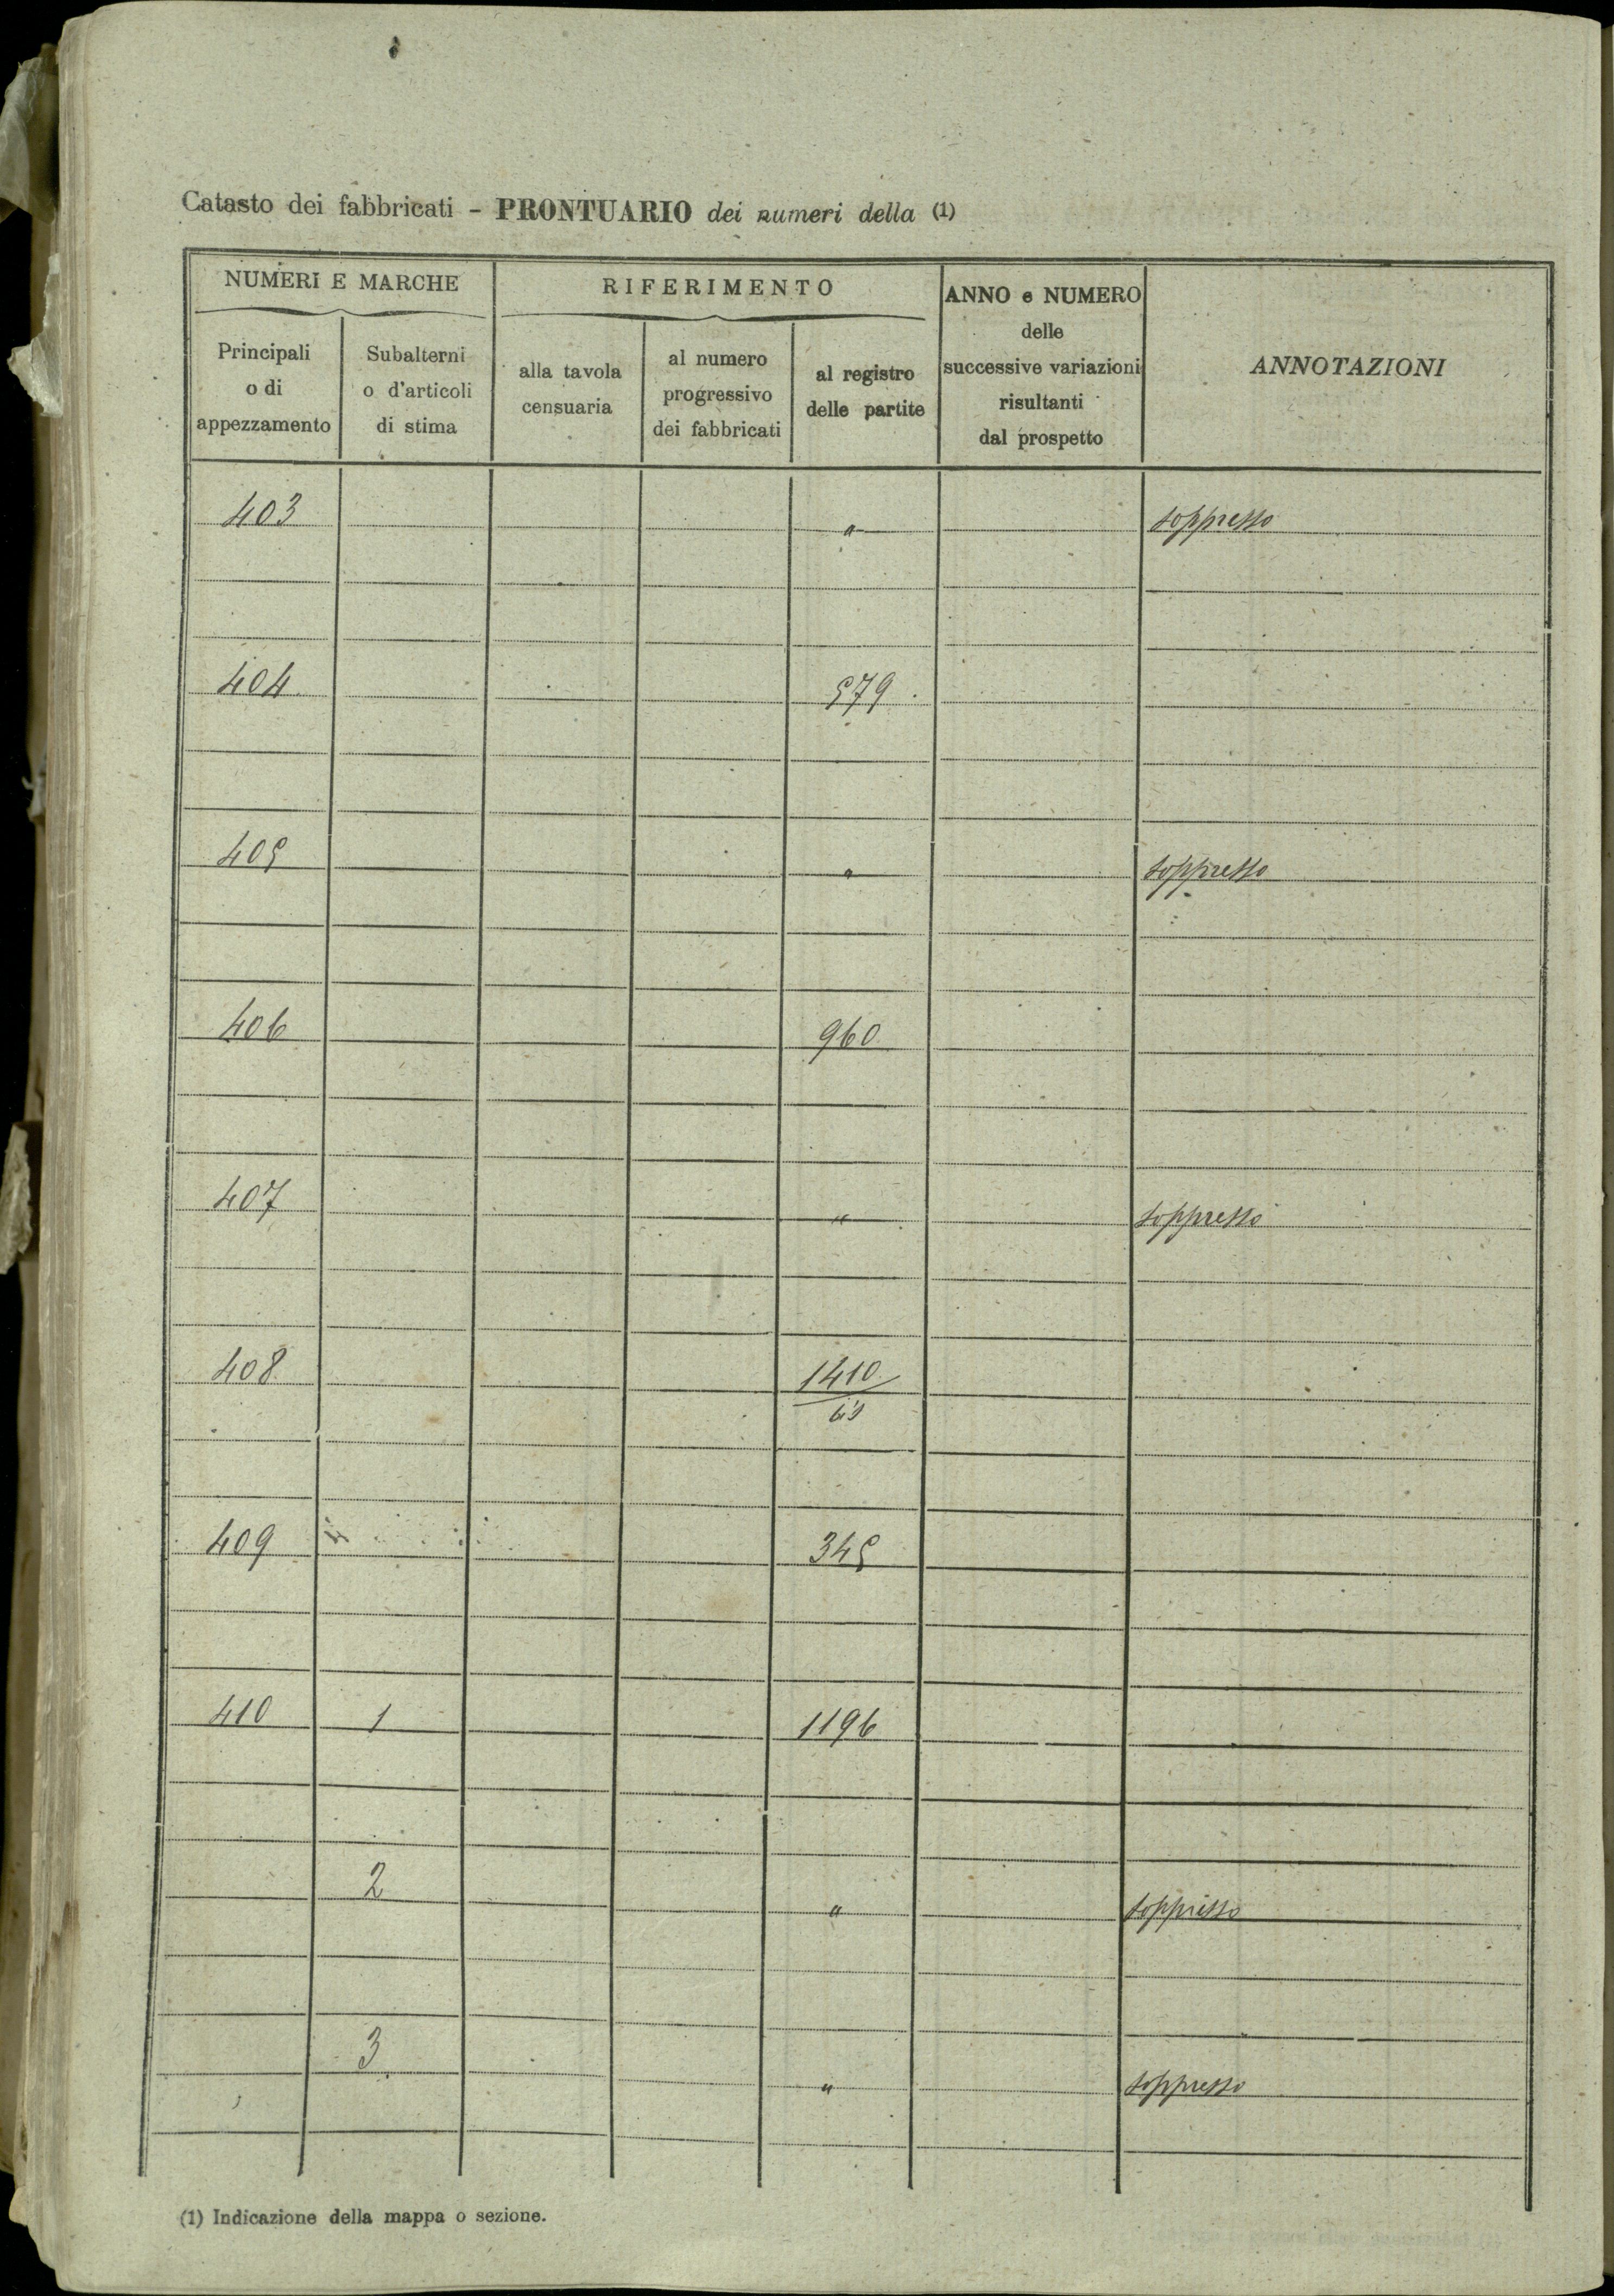 Catasto dei fabbricati - PRONTUARIO dei numeri della (1)
NUMERI E MARCHE
RIFERIMENTO
ANNO e NUMERO
delle
successive variazioni
risultanti
dal prospetto
ANNOTAZIONI
Principali
o di
appezzamento
Subalterni
o d'articoli
di stima
alla tavola
censuaria
al numero
progressivo
dei fabbricati
al registro
delle partite
403 " soppresso
404 579
405 " soppresso
406 960
407 " soppresso
408 1410
409 345
410 1 1196
2 " soppresso
3 " soppresso
(1) Indicazione della mappa o sezione.